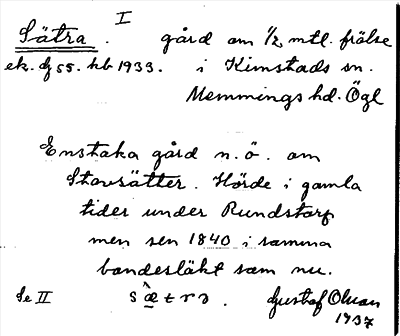 I
Sätra . gård om 1/2 mtl. frälse
ek. bl 55. kb 1933. i Kimstads sn.
Memmings hd. Ögl
Enstaka gård n.ö. om
Stavsätter. Hörde i gamla
tider under Rundstorp
men sen 1840 i samma
bondesläkt som nu.
Se II sæ̂trə . Gustaf Olsson
1937